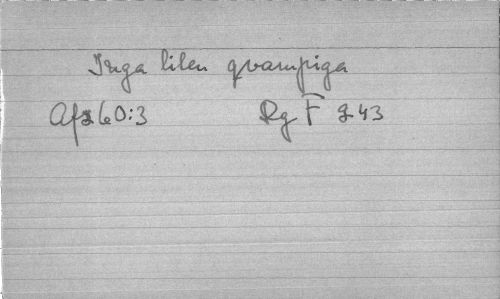 Inga liten qvarnpiga
Afz 60:3 Rg F 243